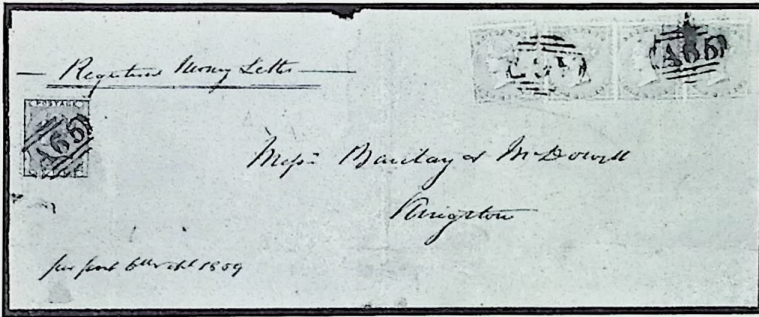 Registered Money Letter
POSTAGE
A65
A65
Messrs Barclay & McDowell
Kingston
per post 6th 1859